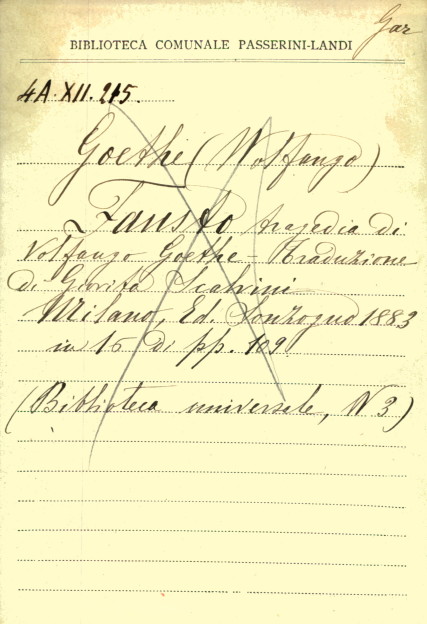 Gar
BIBLIOTECA COMUNALE PASSERINI-LANDI
4A.XII.215.
Goethe (Wolfango)
Fausto tragedia di
Volfango Goethe - Traduzione
di Giovita Scalvini
Milano, Ed. Sonzogno 1883
in 16 di pp. 109
(Biblioteca universale, N 3)